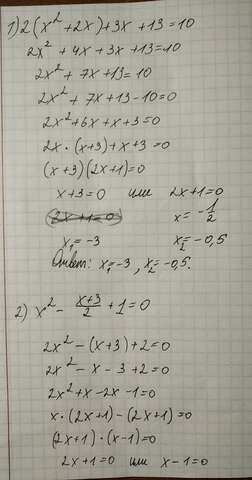 1) 2(x² + 2x) + 3x + 13 = 10
2x² + 4x + 3x + 13 = 10
2x² + 7x + 13 = 10
2x² + 7x + 13 - 10 = 0
2x² + 6x + x + 3 = 0
2x · (x+3) + x + 3 = 0
(x+3)(2x+1) = 0
x + 3 = 0 или 2x + 1 = 0
2x + 1 = 0 x = -1/2
x₁ = -3 x₂ = -0,5
Ответ: x₁ = -3, x₂ = -0,5.
2) x² - (x+3)/2 + 1 = 0
2x² - (x+3) + 2 = 0
2x² - x - 3 + 2 = 0
2x² + x - 2x - 1 = 0
x · (2x+1) - (2x+1) = 0
(2x+1) · (x-1) = 0
2x + 1 = 0 или x - 1 = 0